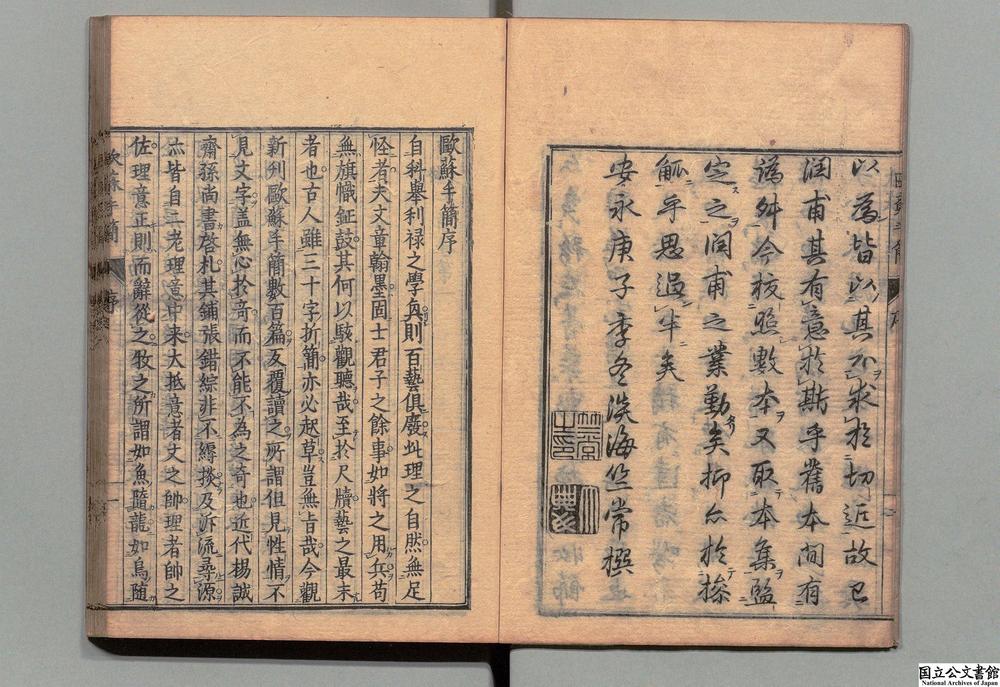 以為皆以其不ヲ求於切近故已
濶甫其有意於斯乎舊本間有
譌舛今校照數本又取本集監
定之濶甫之業勤矣抑亦於操
觚乎思過半矣
安永庚子季冬淡海竺常撰
歐蘇手簡序
自科舉利禄之學興則百藝俱廢此理之自然無足
怪者夫文章翰墨固士君子之餘事如將之用兵苟
無旗幟鉦鼓其何以駭觀聽哉至於尺牘藝之最末
者也古人雖三十字折簡亦必起草豈無旨哉今觀
新刋歐蘇手簡數百篇反覆讀之所謂但見性情不
見文字盖無心於竒而不能不為之竒也近代楊誠
齋孫尚書啓札其鋪張錯綜非不縟掞及泝流尋源
亦皆自二老理意中来大抵意者文之帥理者帥之
佐理意正則而辭從之牧之所謂如魚隨龍如鳥随
歐蘇手簡 序 一
国立公文書館
National Archives of Japan